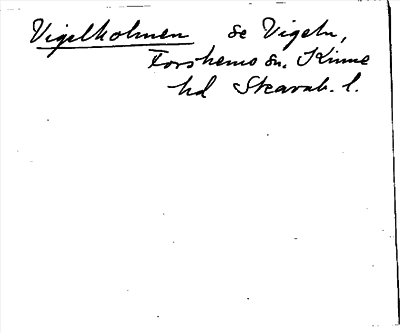 Vigelholmen se Vigeln,
Forshems sn. Kinne
hd Skarab. l.